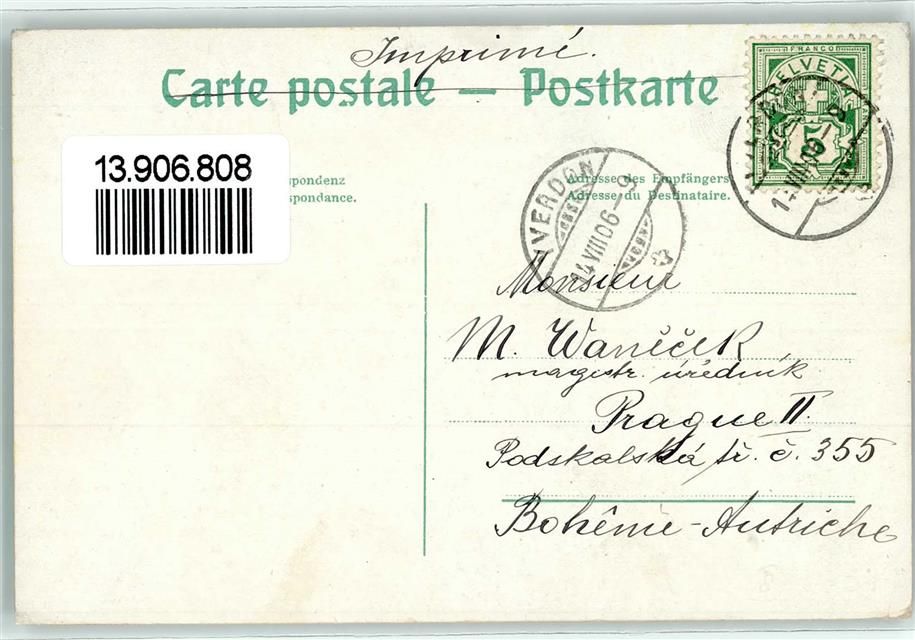 Imprimé.
Carte postale — Postkarte
FRANCO
HELVETIA
5
13.906.808
spondenz
spondance.
Adresse des Empfängers
Adresse du Destinataire.
YVERDON
14 VIII 06 - 9
Monsieur
M. Waněček
magistr. úředník
Prague II.
Podskalská tř. č. 355
Bohême-Autriche